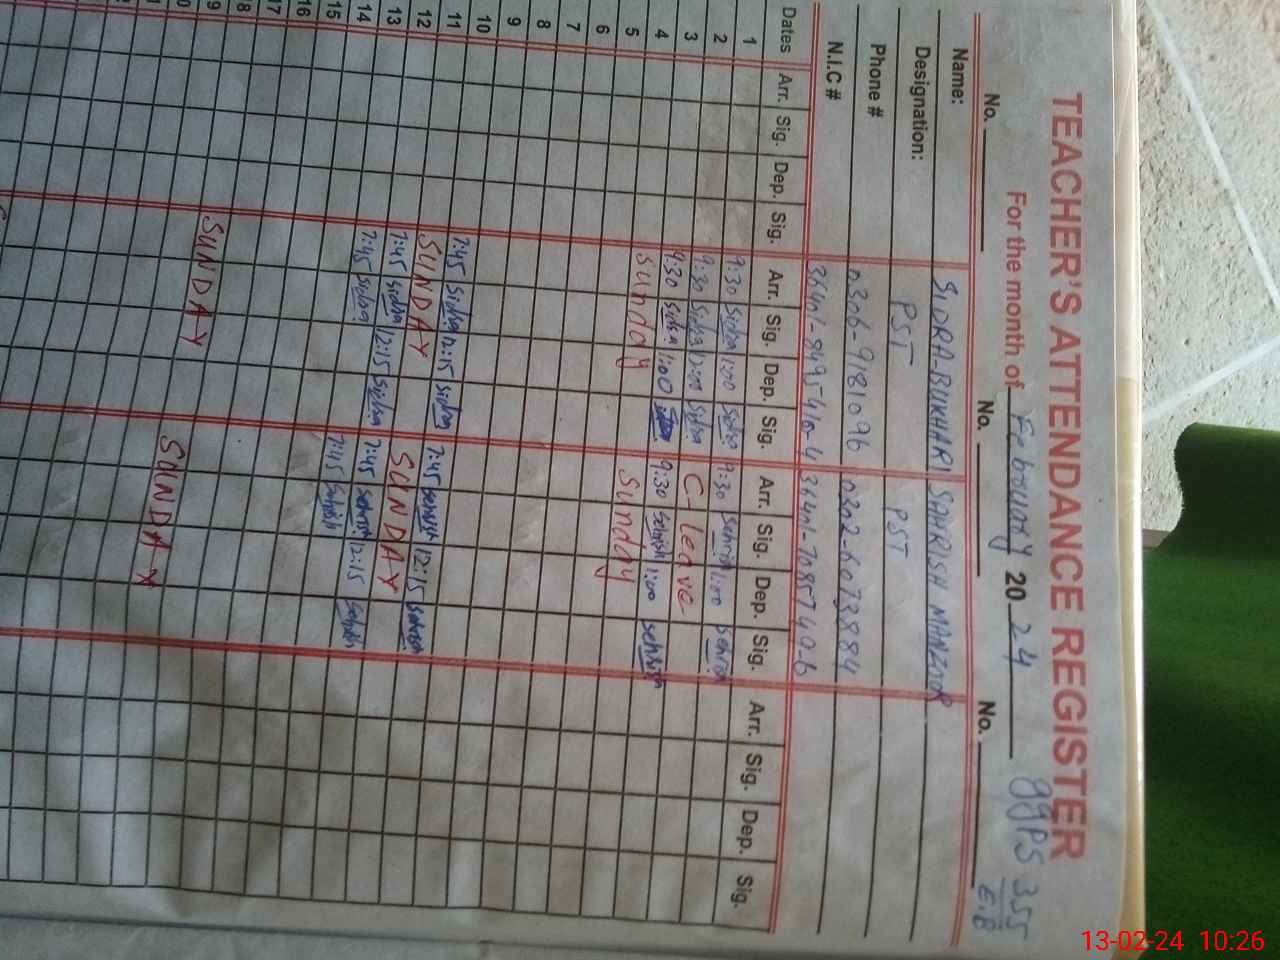 TEACHER'S ATTENDANCE REGISTER
For the month of February 2024 GGPS 355
E.B
No. No. No.
Name: SIDRA-BUKHARI SAHRISH MANZOOR
Designation: PST PST
Phone # 0306-9181096 0302-6073884
N.I.C # 36401-8495410-4 36401-7085749-6
Dates Arr. Sig. Dep. Sig. Arr. Sig. Dep. Sig. Arr. Sig. Dep. Sig. Arr. Sig. Dep. Sig.
1 9:30 Sidra 1:00 Sidra 9:30 Sehrish 1:00 Sehrish
2 9:30 Sidra 1:00 Sidra C-leave
3 9:30 Sidra 1:00 9:30 Sehrish 1:00 Sehrish
4 Sunday Sunday
5
6
7
8
9
10 7:45 Sidra 12:15 Sidra 7:45 Sehrish 12:15 Sehrish
11 SUNDAY SUNDAY
12 7:45 Sidra 12:15 Sidra 7:45 Sehrish 12:15 Sehrish
13 7:45 Sidra 7:45 Sehrish
14
15
16
17
18 SUNDAY SUNDAY
13-02-24 10:26